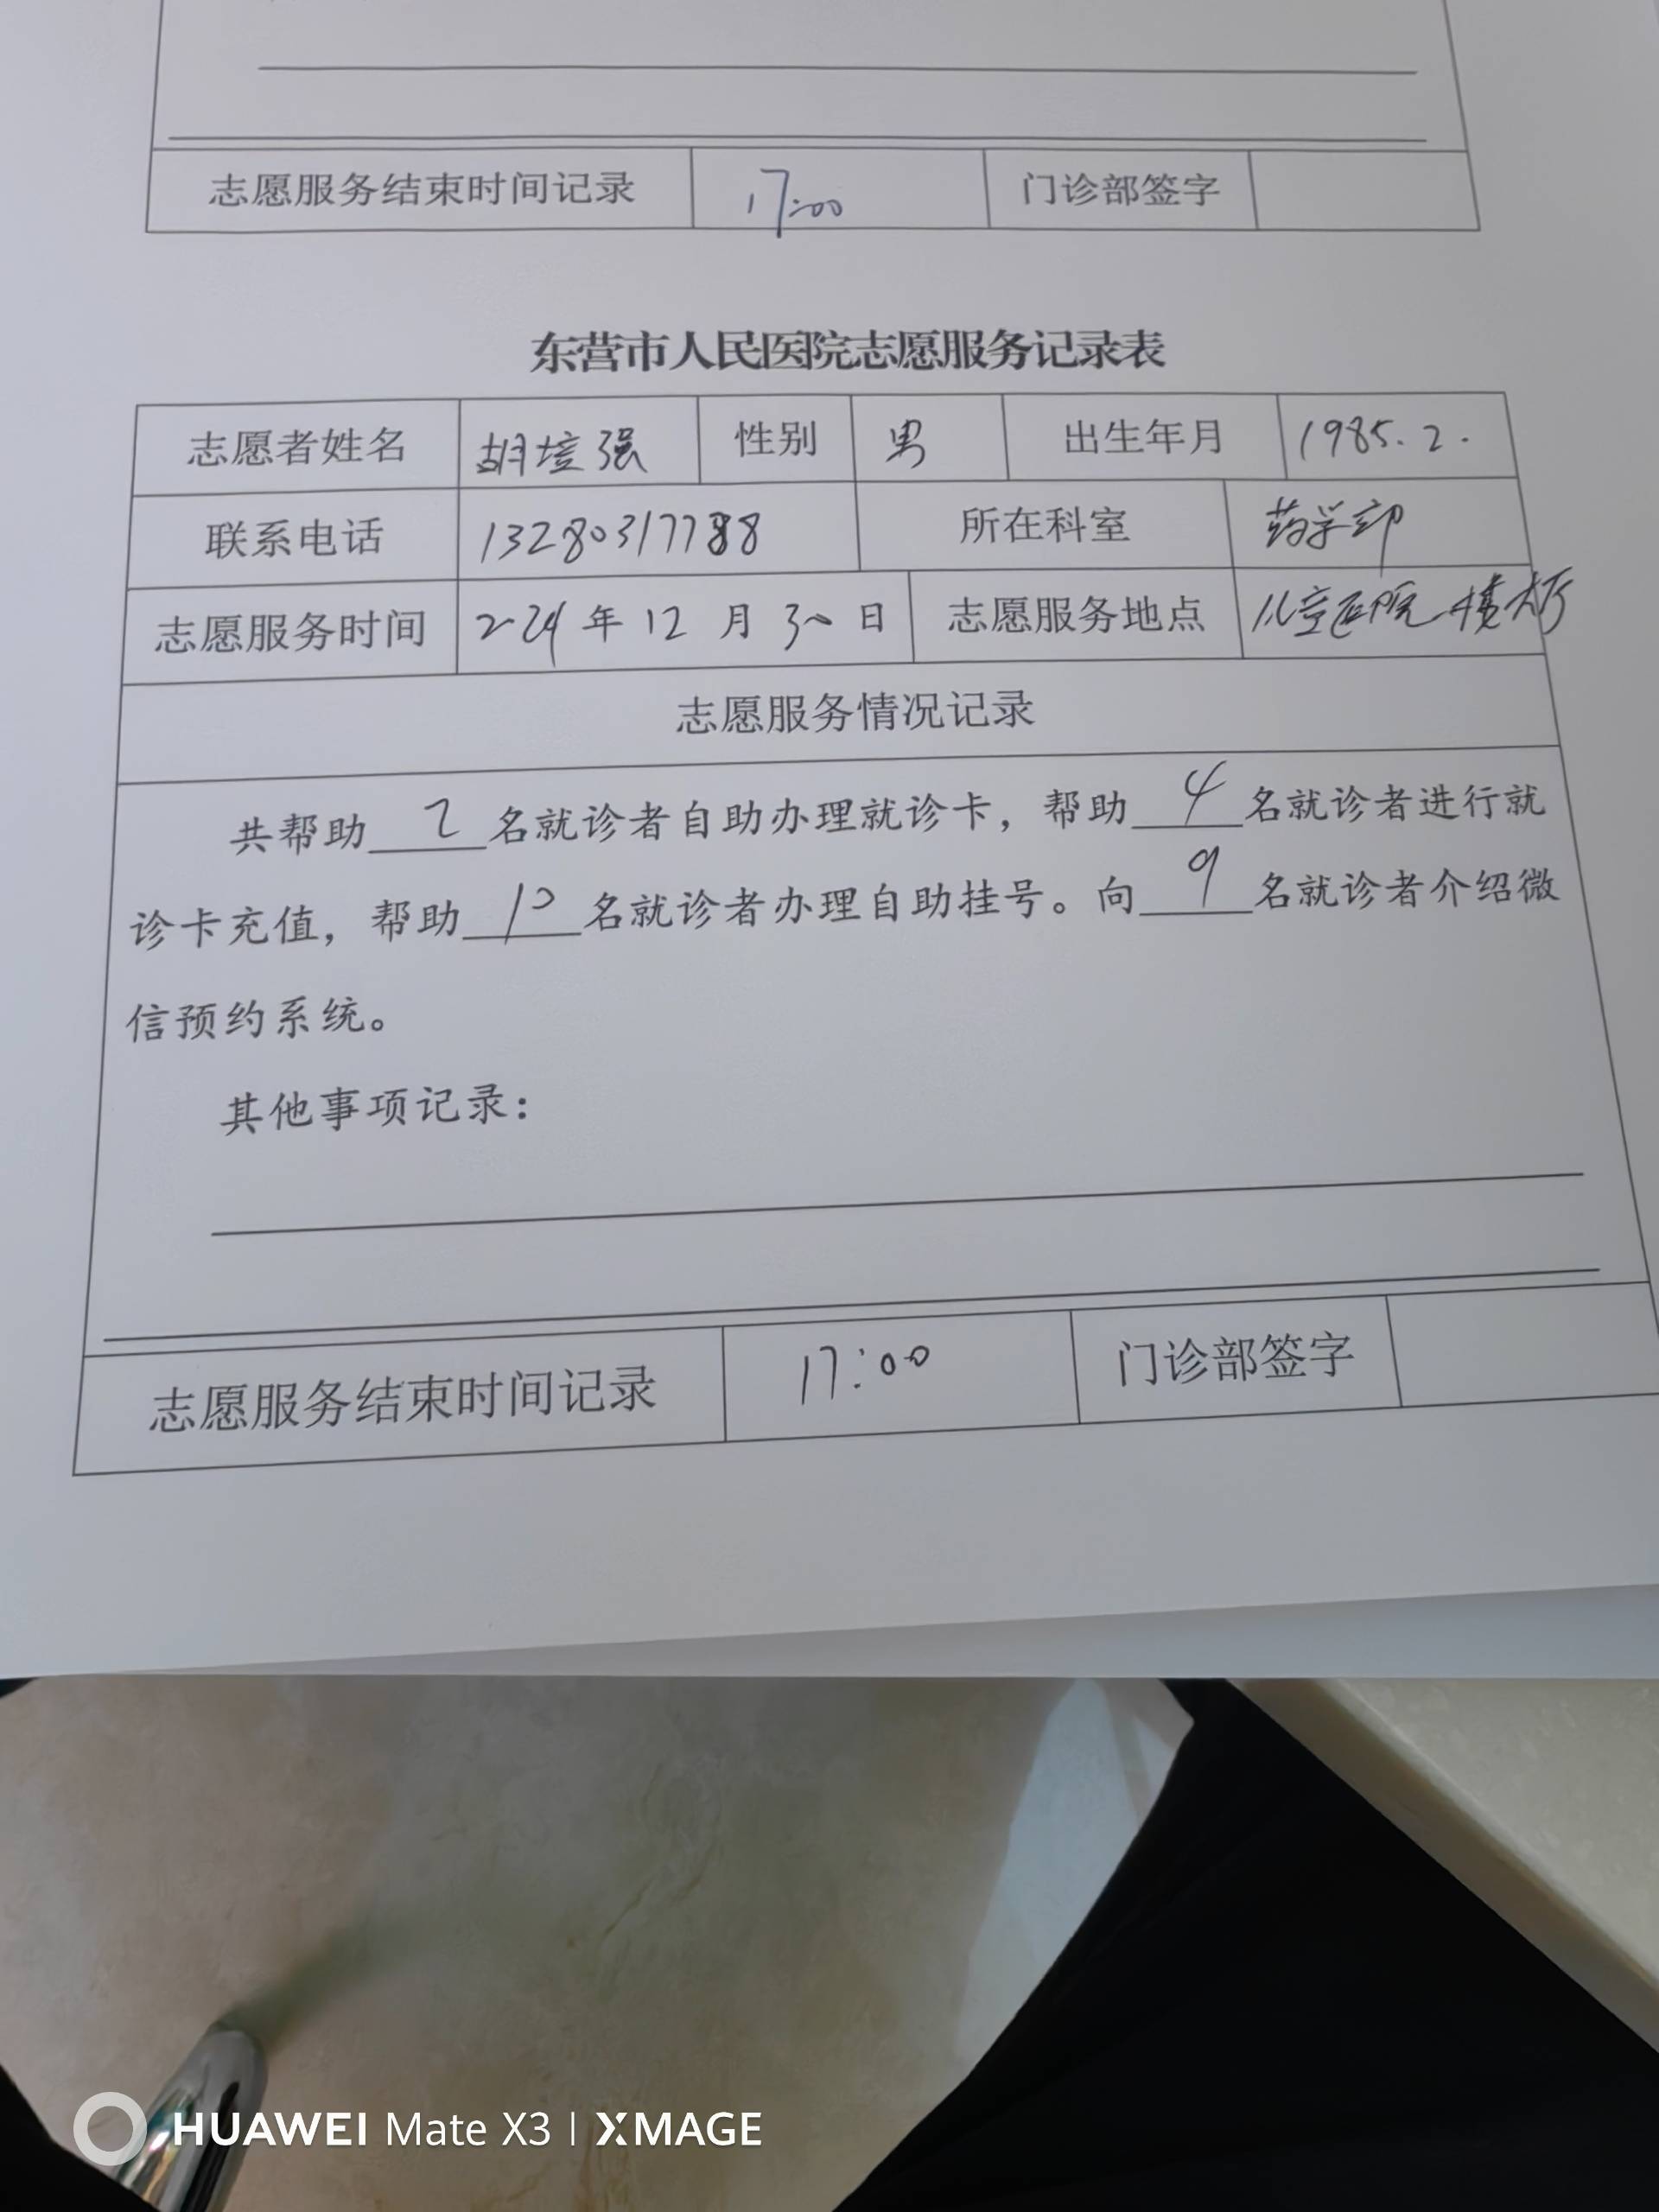 志愿服务结束时间记录 17:00 门诊部签字
东营市人民医院志愿服务记录表
志愿者姓名 胡培强 性别 男 出生年月 1985.2.
联系电话 13280317788 所在科室 药学部
志愿服务时间 2024年12月30日 志愿服务地点 儿童医院一楼大厅
志愿服务情况记录
共帮助 2 名就诊者自助办理就诊卡，帮助 4 名就诊者进行就
诊卡充值，帮助 10 名就诊者办理自助挂号。向 9 名就诊者介绍微
信预约系统。
其他事项记录：
志愿服务结束时间记录 17:00 门诊部签字
HUAWEI Mate X3 | XMAGE